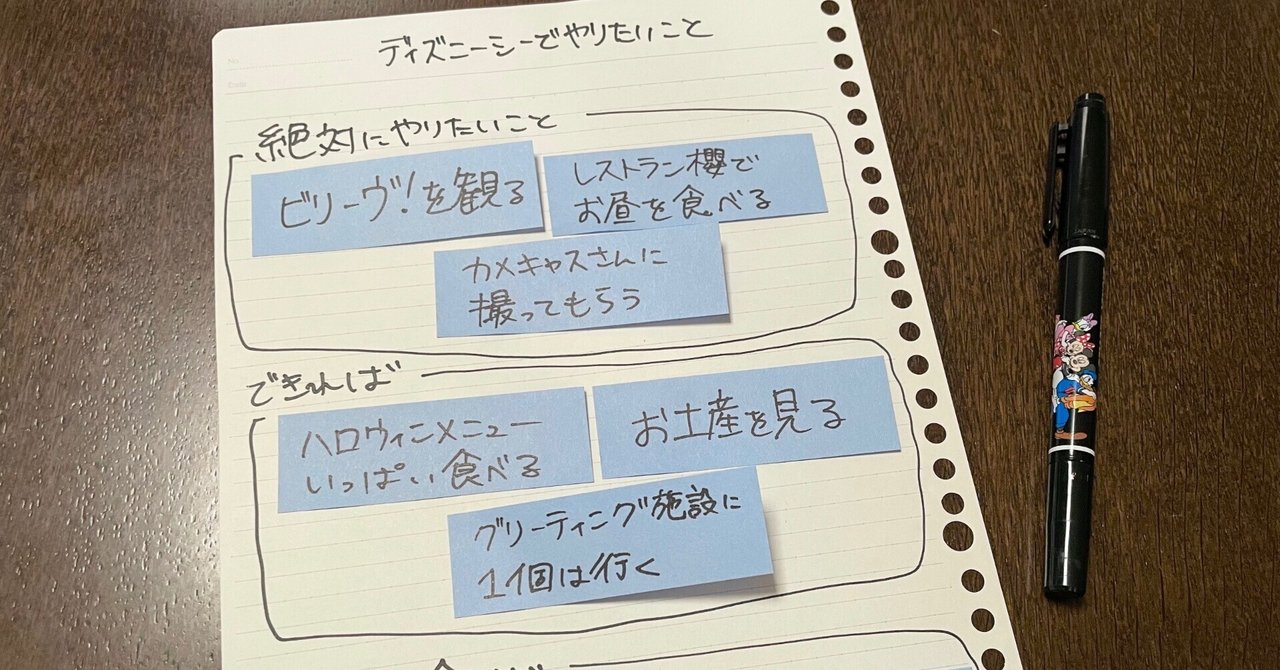 ディズニーシーでやりたいこと
No.
Date
絶対にやりたいこと
ビリーヴ!を観る
レストラン櫻で
お昼を食べる
カメキャスさんに
撮ってもらう
できれば
ハロウィンメニュー
いっぱい食べる
お土産を見る
グリーティング施設に
1個は行く